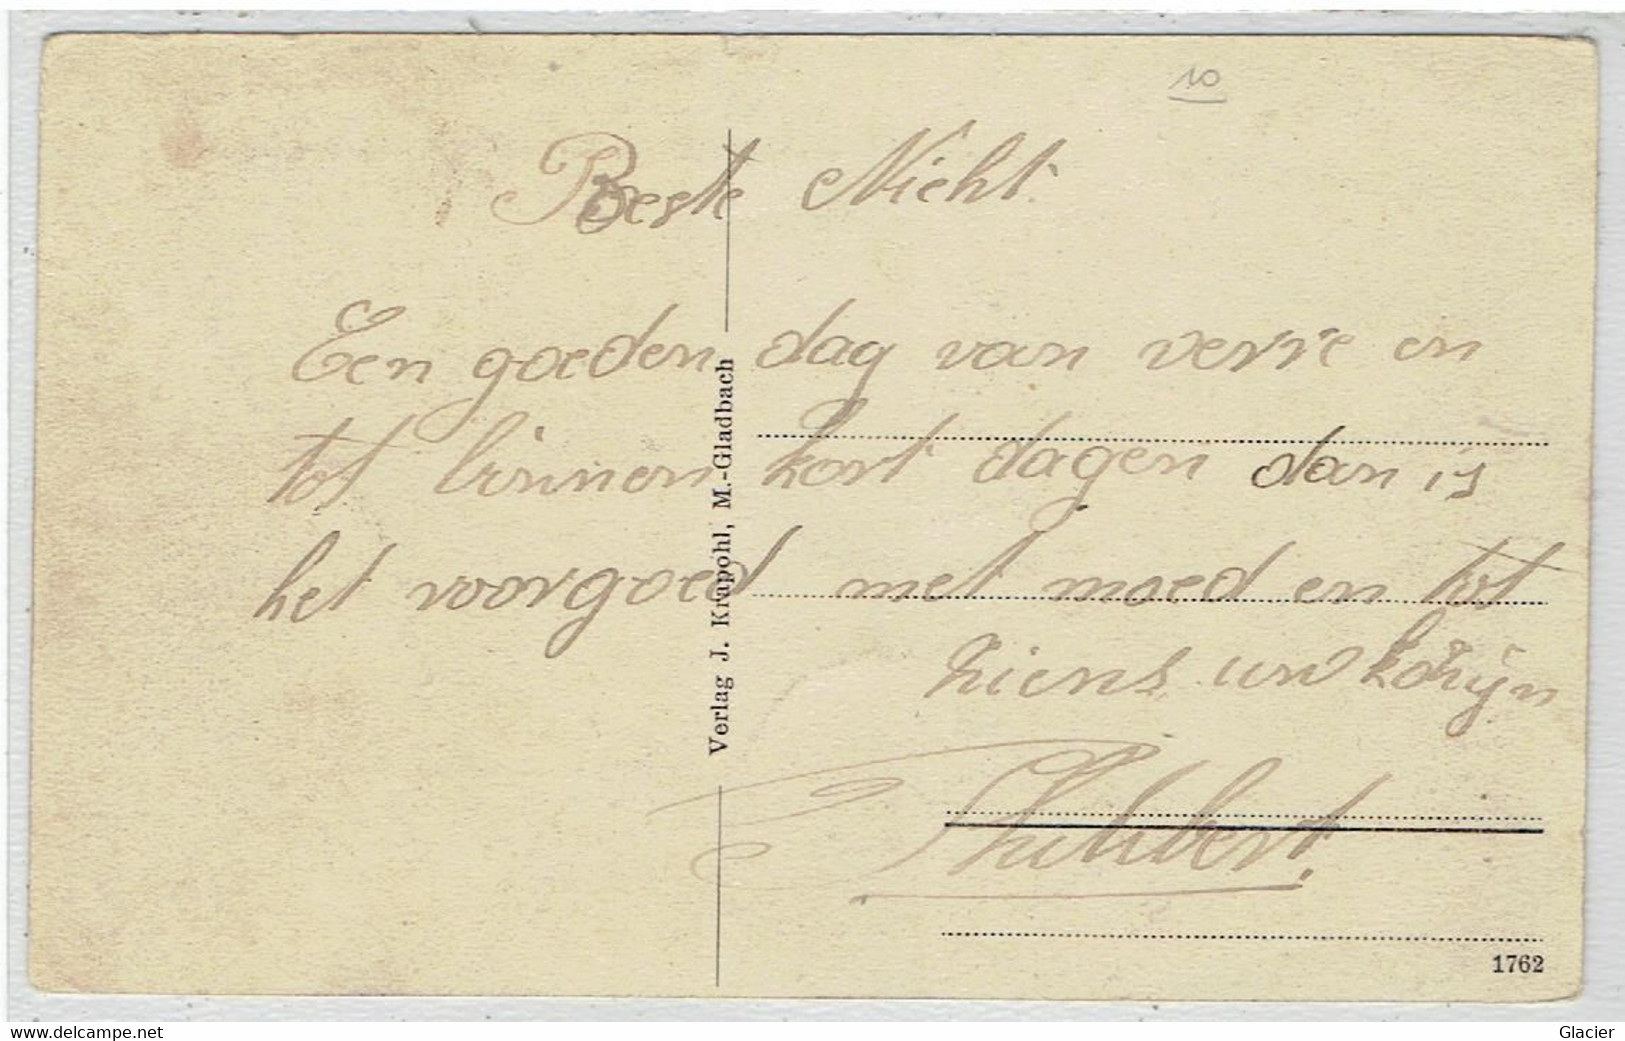 10
Beste Nicht.
Een goeden dag van verre en
tot binnen kort dagen dan is
het voorgoed met moed en tot
ziens uw kozijn
Hubbert.
Verlag J. Krapohl, M.-Gladbach
1762
www.delcampe.net
Glacier